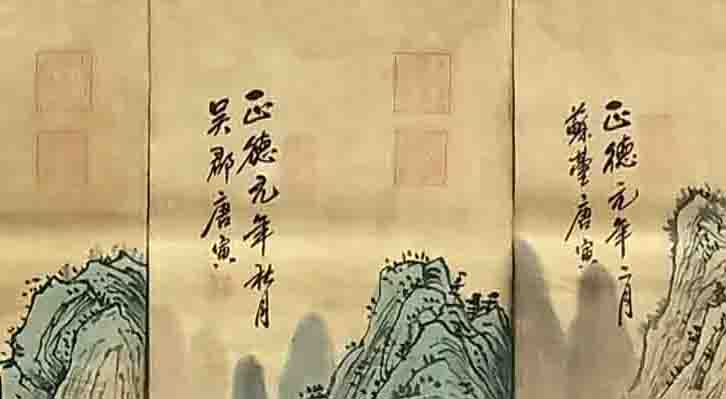 正德元年二月
蘇臺唐寅
正德元年秋月
吳郡唐寅